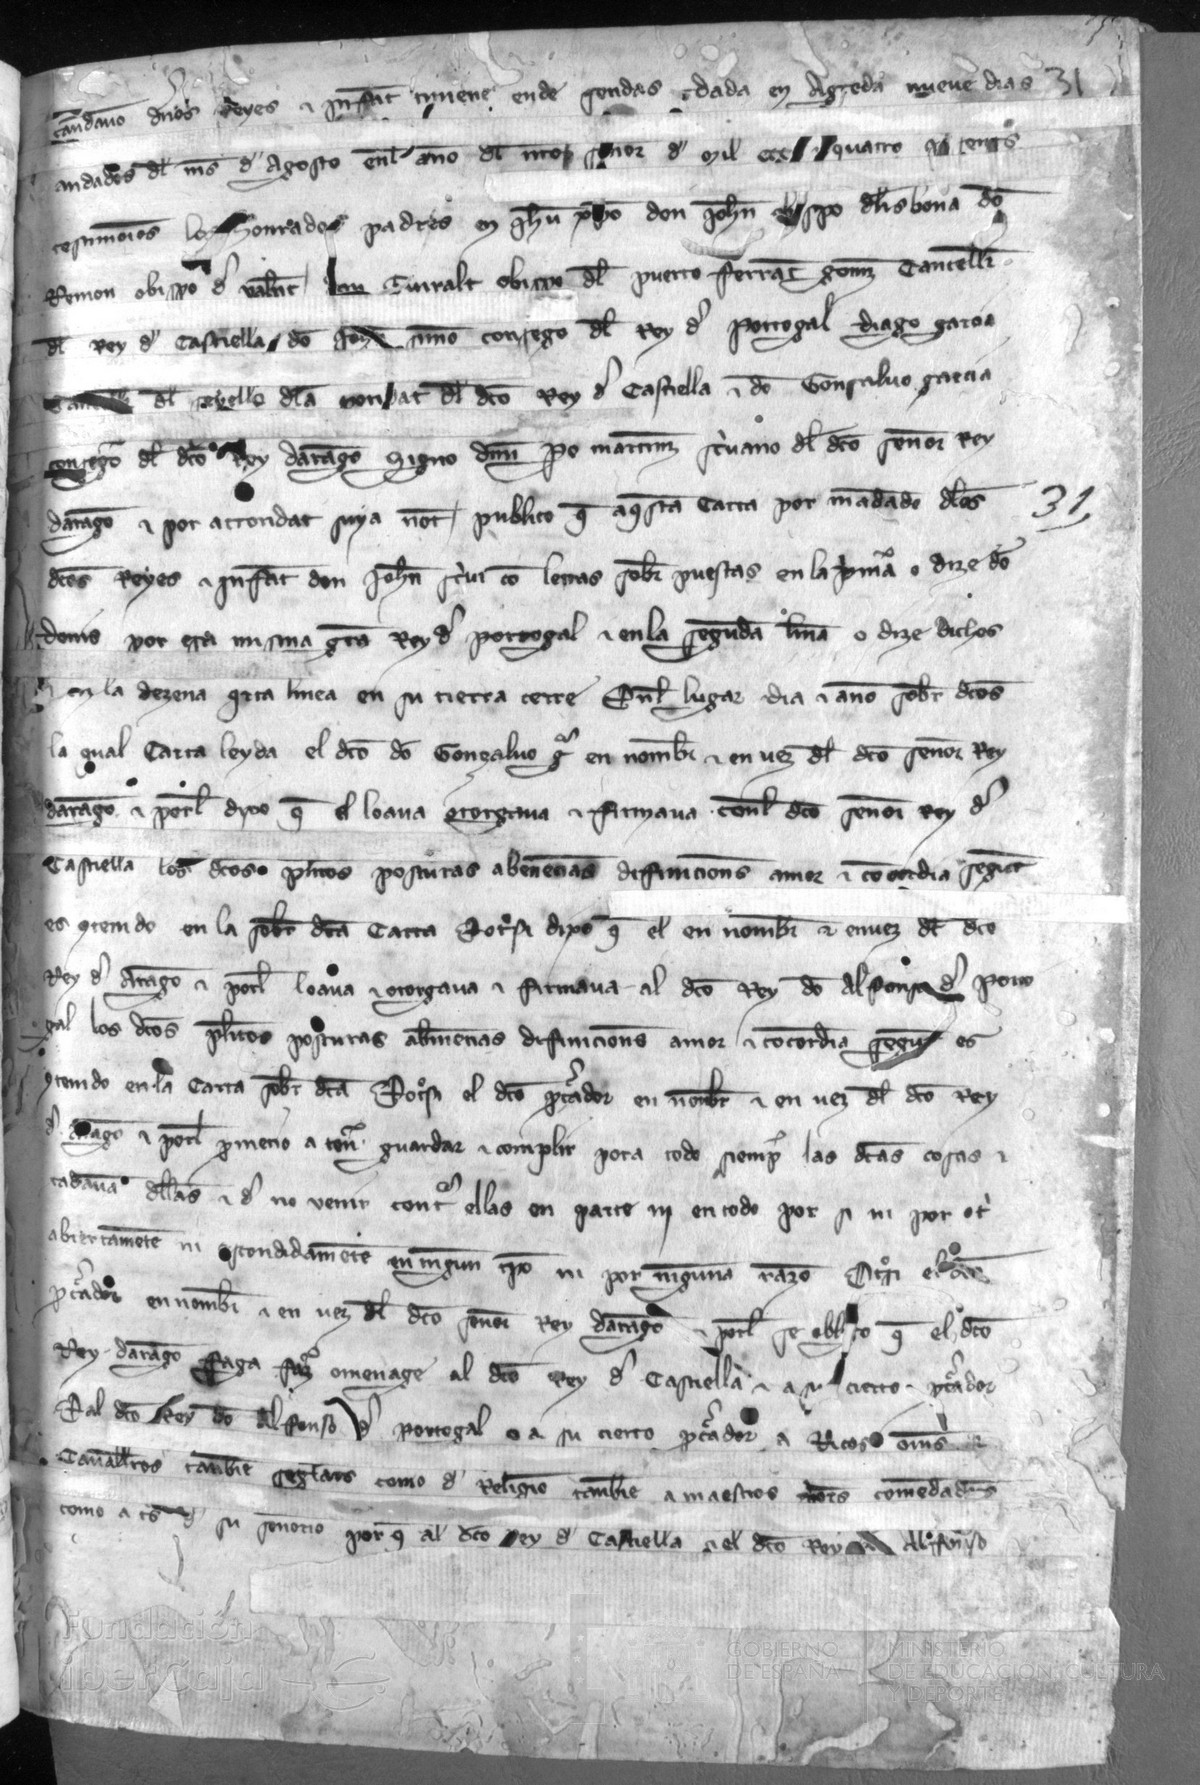 cadauno dnos Reyes & Infat tuviene ende sendas dada en Agreda nueve dias 31
andados dl mes d Agosto enl ano dl nro senor d Mil ccc quatro
testimonios los honrados padres en Jhu xpo don Johan bispo dlisbona do
Remon obispo d valent Guiralt obispo dl puerto Ferrat gomz Cancellr
dl Rey d Castiella do simo consego dl Rey d Portogal diago garcia
dl seyello dla poridat dl dco Rey d Castiella & do Gonsaluo garcia
consego dl dco Rey darago Signo dmi Po martinz scriuano dl dco senor Rey
darago & por actoridat suya not publico q aqsta Carta por madado dlos
dcos Reyes & Infat don Johan scriui co letras sobr puestas en la pma o dize do
denis por essa misma gra Rey d portogal & en la segunda linea o dize dichos
& en la dezena qrta linea en su tierra cerre Enl lugar dia & ano sobr dcos
la qual Carta leyda el dco do Gonzaluo gr en nombr & en uez dl dco senor Rey
darago & porl dixo q el loaua otorgaua & firmaua conl dco senor Rey d
Castiella los dcos pleitos posturas abenencias difiniciones amor & cocordia segut
es qtenido en la sobr dca Carta Otrosi dixo q el en nombr & en uez dl dco
Rey d Arago & porl loaua & otorgaua & firmaua al dco Rey do Alfonso d Porto
gal los dcos pleitos posturas abinencias difiniciones amor & cocordia segut es
qtenido en la Carta sobr dca Otrosi el dco pcurador en nombr & en uez dl dco Rey
d arago & porl prometio a tener guardar & complir pora todo siempr las dcas cosas &
cadauna dllas & d no venir contra ellas en parte ni en todo por si ni por otri
abiertamete ni escondidamete en nigun tpo ni por niguna razo Otrosi el dco
pcurador en nombr & en uez dl dco senor Rey darago & porl se obligo q el dco
Rey darago faga fazer omenage al dco Rey d Castiella & a su cierto pcurador
E al dco Rey do Alfonso d Portogal o a su cierto pcurador a Ricos omes &
Cauallros tambie seglars como d Religio tambie a maestros comedadors
como a d su senorio por q al dco Rey d Castiella & el dco Rey Alfonso
31
Fundación
iberCaja
GOBIERNO
DE ESPAÑA
MINISTERIO
DE EDUCACIÓN, CULTURA
Y DEPORTE